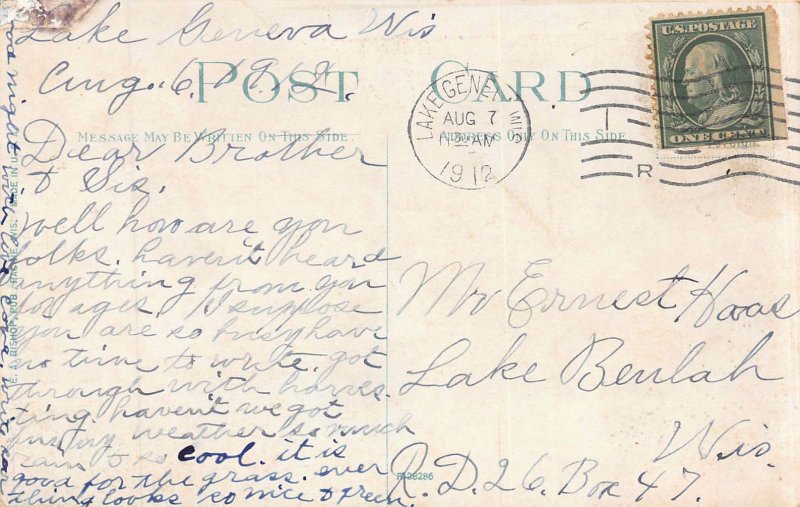 Lake Geneva Wis
Aug. 6. 1912.
POST CARD
MESSAGE MAY BE WRITTEN ON THIS SIDE
ADDRESS ONLY ON THIS SIDE
Dear Brother
& Sis.
Well how are you
folks. haven't heard
anything from you
for ages. I suppose
you are so busy have
no time to write. got
through with harves.
ting. haven't we got
funny weather so much
rain & so cool. it is
good for the grass. ever
ything looks so nice & green.
E. A. BISHOP, PUB. RACINE, WIS. MADE IN U.S.A.
LAKE GENEVA WIS.
AUG 7
AM
1912
R
U.S. POSTAGE
ONE CENT
Mr Ernest Haas
Lake Beulah
Wis.
R.D. 26. Box 47.